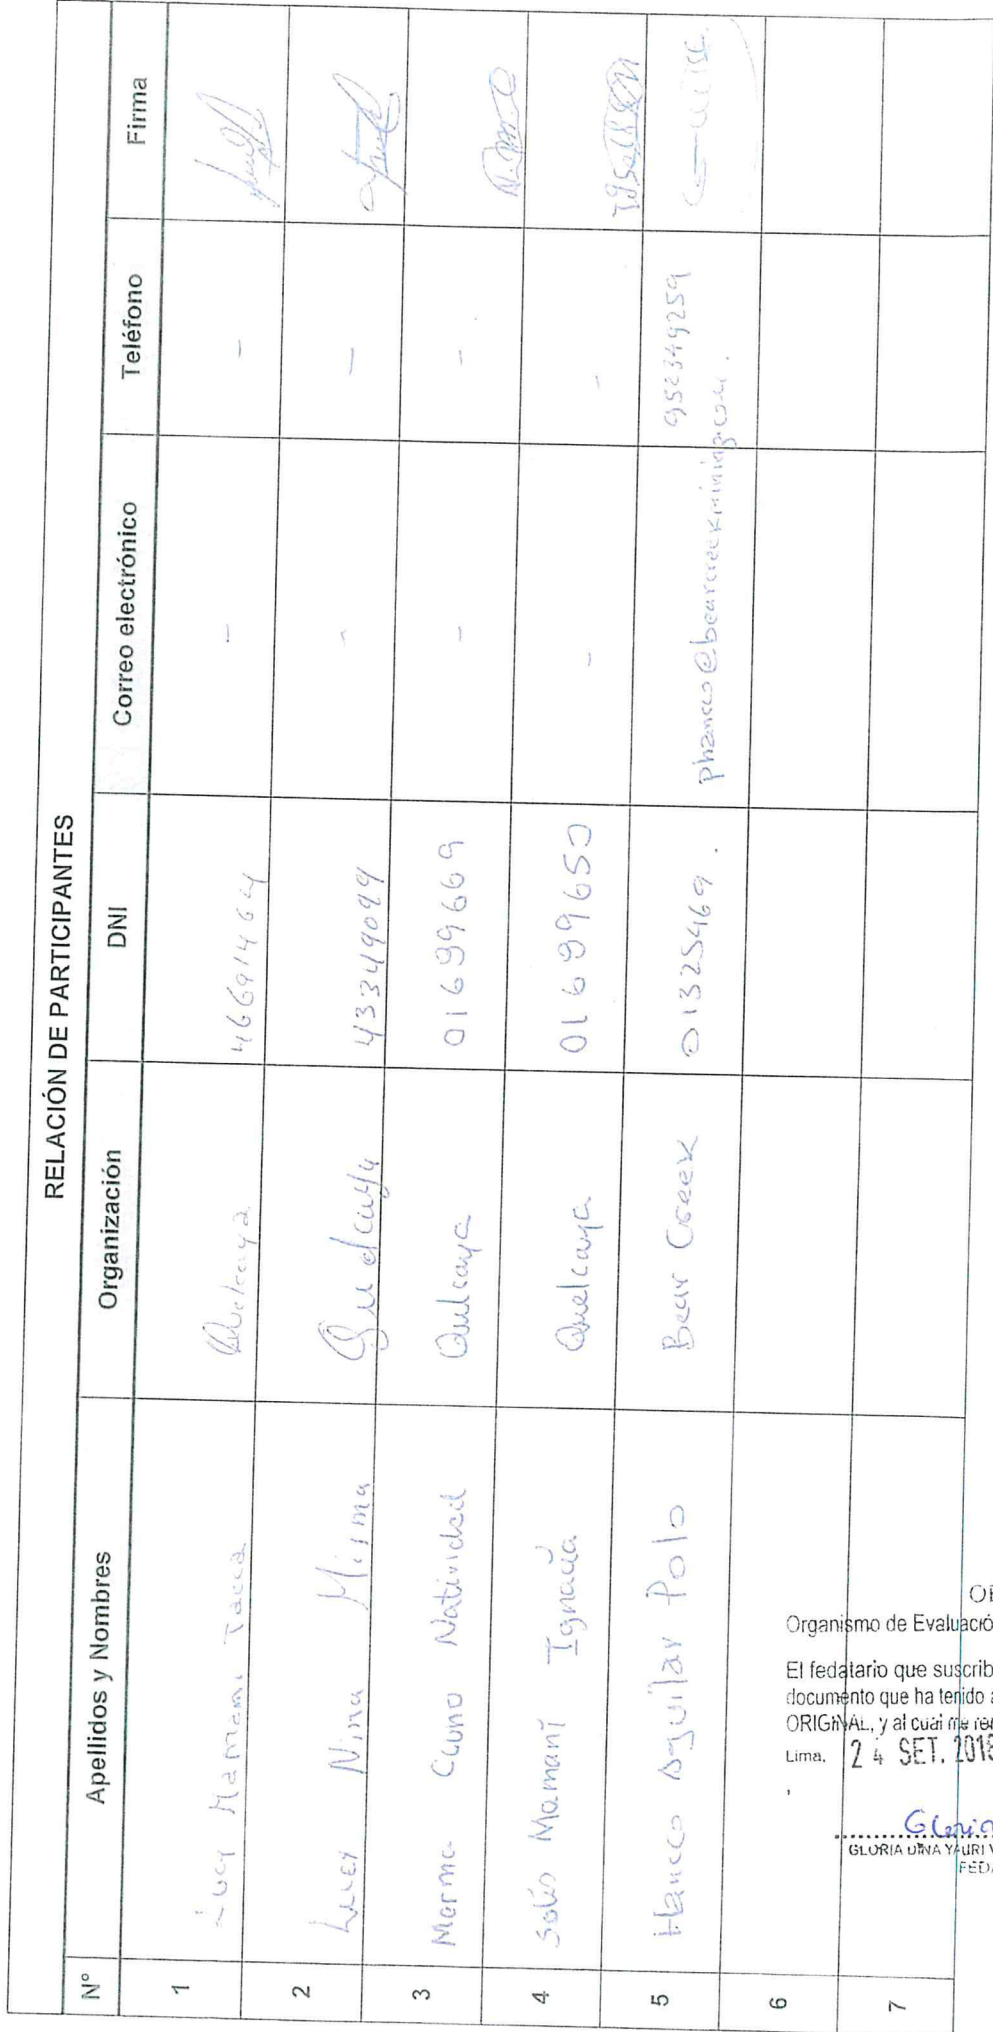 RELACIÓN DE PARTICIPANTES
N° Apellidos y Nombres Organización DNI Correo electrónico Teléfono Firma
1 Lucy Mamani Tacca Quelcaya 46691464 - -
2 Nina Misma Quelcaya 43349099 - -
3 Marma Ccuno Natividad Qulcaya 01699669 - -
4 Solis Mamani Ignacia Quelcaya 01699650 - -
5 Hancco Aguilar Polo Bear Creek 01325469. phancco@bearcreekmining.com. 952349259
6
7
Organismo de Evaluació
El fedatario que suscrib
documento que ha tenido a
ORIGINAL, y al cual me re
Lima, 24 SET. 2018
Gloria
GLORIA DINA YAURI
FEDA